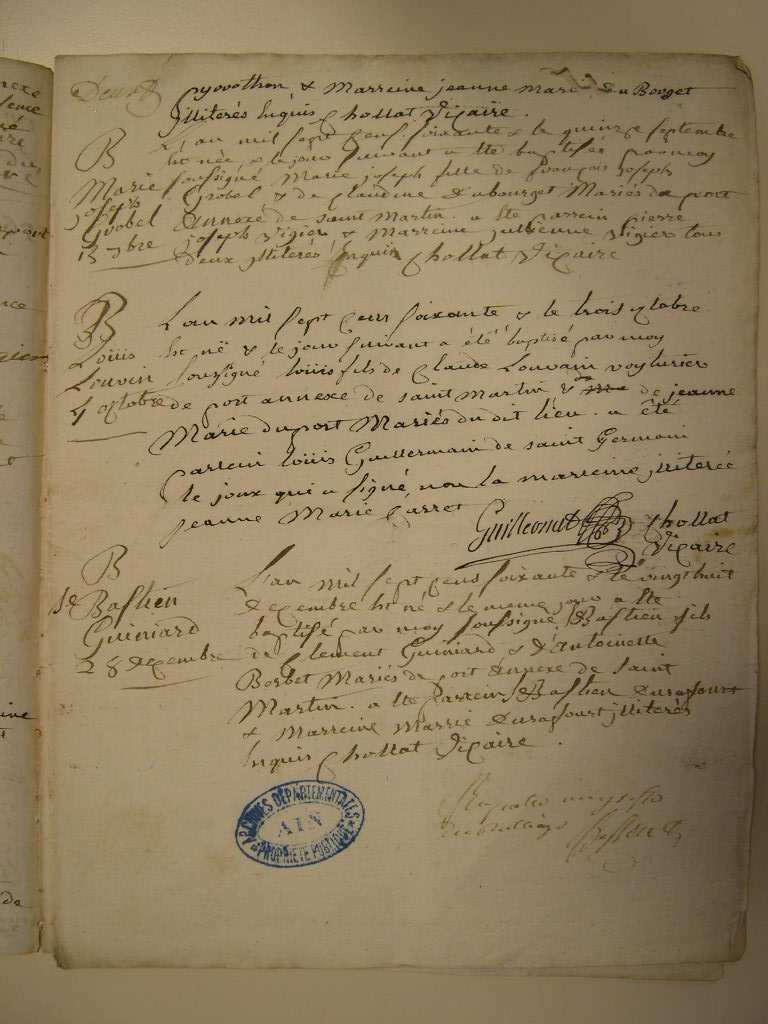 pyvothon & Marreine jeanne marie du Borget
illiterés Enquis Chollat Vicaire.
B
Marie
joseph
Grobel
15 7bre
L'an mil sept cens soixante & le quinze septembre
Est née, & le jour suivant a ete baptisée par moy
soussigné Marie joseph fille de françois joseph
Grobel & de claudine Dubourget Mariés de port
Annexe de saint Martin. a ete parrein pierre
joseph Vigier & Marreine jullienne Vigier tous
deux illiterés Enquis Chollat Vicaire
B
Loüis
Louvin
4 octobre
L'an mil sept cens soixante & le trois octobre
Est né & le jour suivant a été baptisé par moy
soussigné loüis fils de Claude Louvain voyturier
de port annexe de saint Martin & de jeanne
Marie duport Mariés du dit lieu. a été
parrein loüis Guillermain de saint Germain
le joux qui a signé, non la marreine illiterée
jeanne Marie Carret
Chollat
Vicaire
B
Se Bastien
Guiniard
28 decembre
L'an mil sept cens soixante & le vingt huit
decembre Est né & le meme jour a ete
baptisé par moy soussigné, Se Bastien fils
de Clement Guiniard & d'Antoinette
Borbet Mariés de port Annexe de saint
Martin. a ete parrein Se Bastien Durafourt
& Marreine Marrie Durafourt illiterés
Enquis Chollat Vicaire.
ARCHIVES DÉPARTEMENTALES
AIN
PROPRIÉTÉ PUBLIQUE